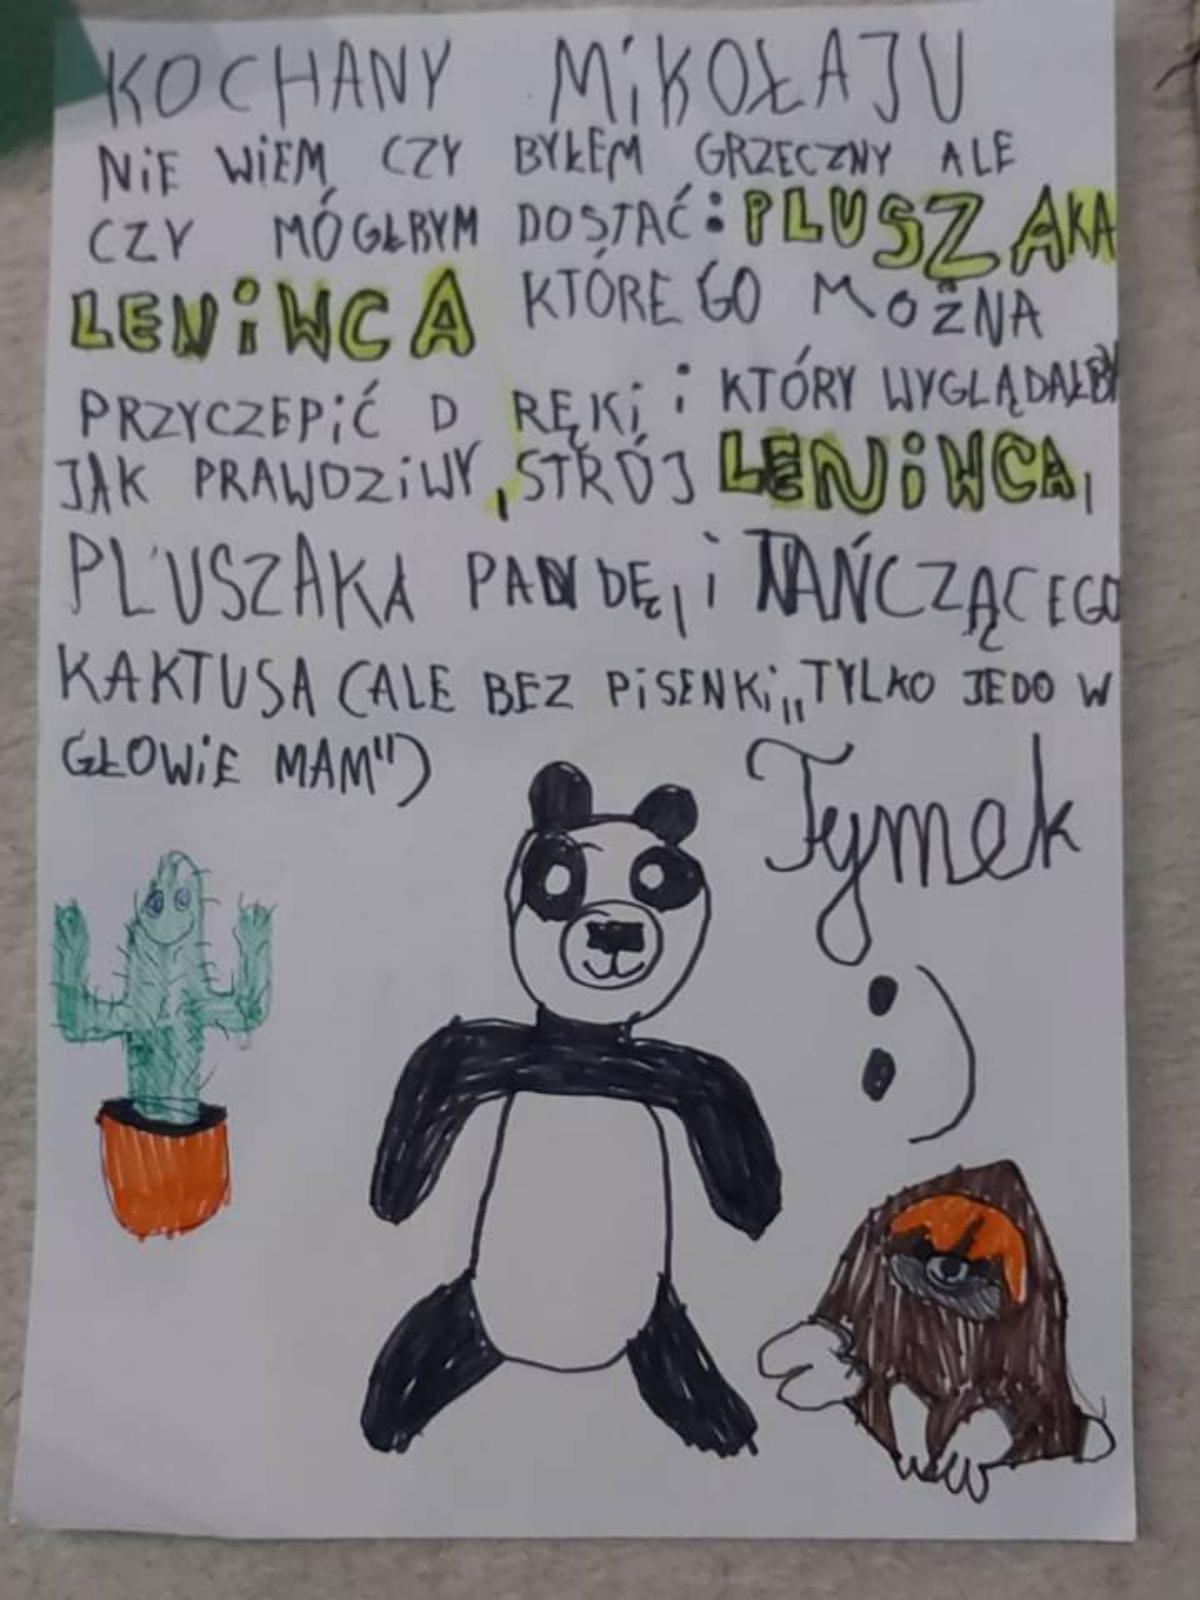 KOCHANY MiKOŁAJU
NiE WiEM CZY BYŁEM GRZECZNY ALE
CZY MÓGŁBYM DOSTAĆ: PLUSZAKA
LENiWCA KTÓREGO MOŻNA
PRZYCZEPiĆ D RĘKi i KTÓRY WYGLĄDAŁBY
JAK PRAWDZiWY, STRÓJ LENiWCA,
PLUSZAKA PANDĘ, i TAŃCZĄCEGO
KAKTUSA (ALE BEZ PiSENKi „TYLKO JEDO W
GŁOWiE MAM")
Tymek
:)